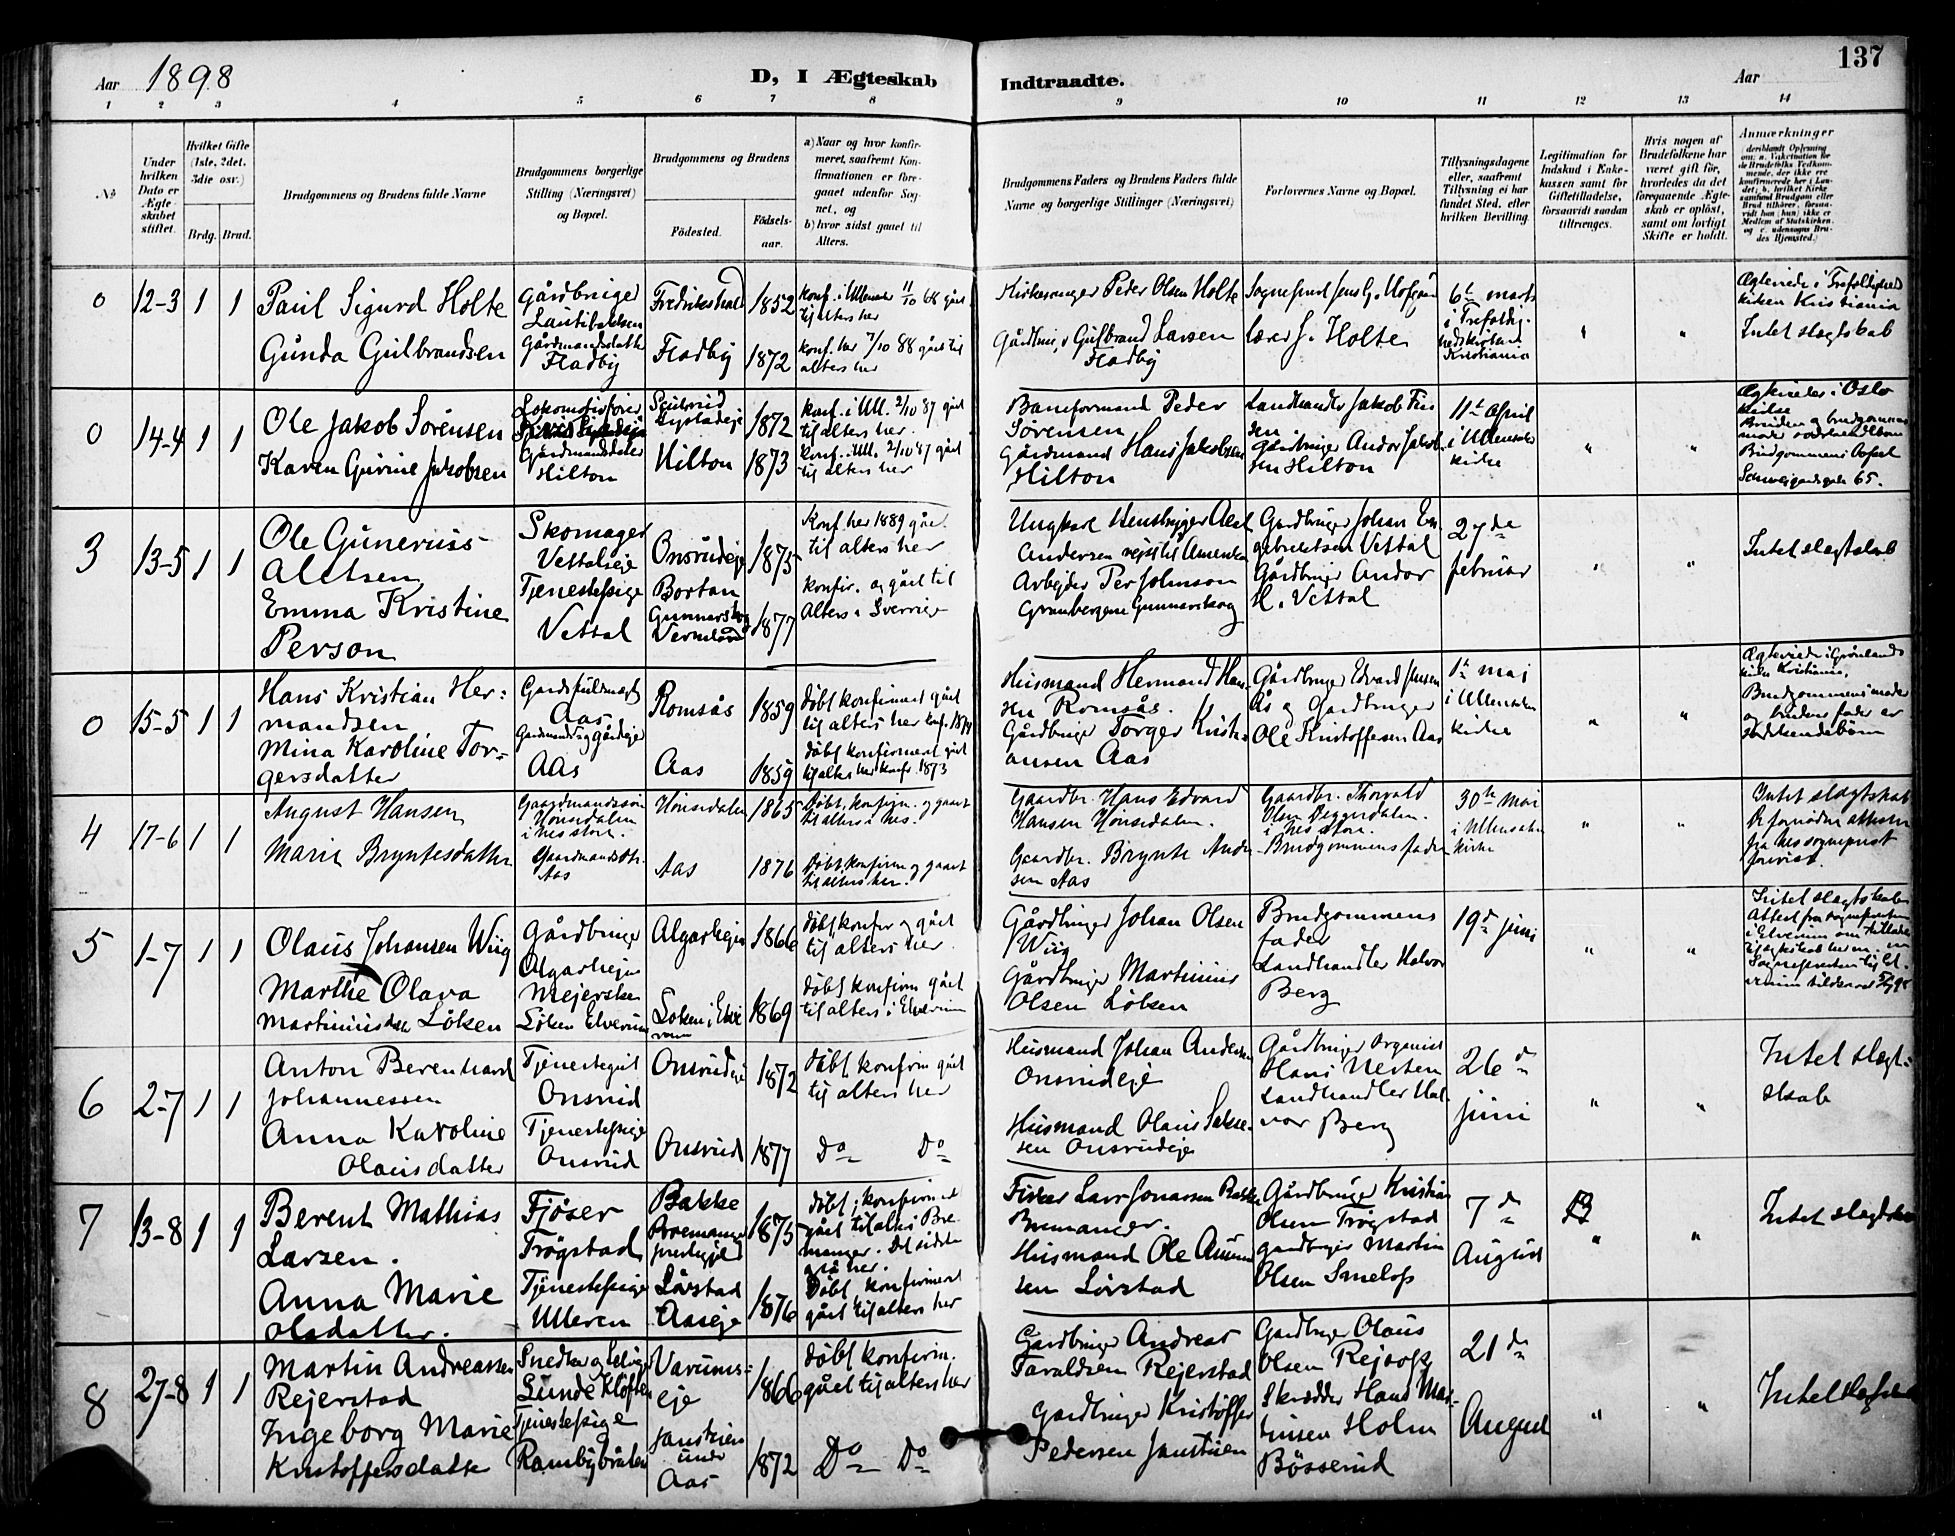 Aar 1898
D, I Ægteskab
Indtraadte.
Aar
137
1 2 3 4 5 6 7 8 9 10 11 12 13 14
№
Under hvilken Dato er Ægteskabet stiftet.
Hvilket Gifte (1ste, 2det, 3die osv.)
Brdg. Brud.
Brudgommens og Brudens fulde Navne
Brudgommens borgerlige Stilling (Næringsvei) og Bopæl.
Brudgommens og Brudens
Födested.
Födsels-aar.
a) Naar og hvor konfirmeret, saafremt Konfirmationen er foregaaet udenfor Sognet, og
b) hvor sidst gaaet til Alters.
Brudgommens Faders og Brudens Faders fulde Navne og borgerlige Stillinger (Næringsvei)
Forlovernes Navne og Bopæl.
Tillysningsdagene eller, saafremt Tillysning ei har fundet Sted, efter hvilken Bevilling.
Legitimation for Indskud i Enkekassen samt for Giftetilladelse, forsaavidt saadan tiltrænges.
Hvis nogen af Brudefolkene har været gift för, hvorledes da det foregaaende Ægteskab er oplöst, samt om lovligt Skifte er holdt.
Anmærkninger
0 12-3 1 1
Paul Sigurd Holte
Gunda Gulbrandsen
Gårdbruger
Gårdmandsdatter
Fladby
Fredrikshald 1852
Fladby 1872
konf. i Ullensaker 11/10 68 gået til alters her
konf. her 7/10 88 gået til alters her
Kirkesanger Peder Olsen Holte
Gårdbruger Gulbrand Larsen
Fladby
Holte
6te marts
i Trefoldighedskirken
Kristiania
Ægteviede i Trefoldigheds
kirken Kristiania
Intet slægtskab
0 14-4 1 1
Ole Jakob Sörensen
Karen Gurine Jakobsen
Lokomotivfører
Gårdmandsdatter
Hilton
1872
Hilton 1873
konf. i Ull. 2/10 87 gået
til alters her.
konf. i Ull. 2/10 87 gået
til alters her
Baneformand Peder
Sørensen
Gårdmand Hans Jakobsen
Hilton
Landhandler Jakob
Gårdbruger Andor Jakobsen Hilton
11te April
i Ullensaker
kirke
Ægteviede i Oslo
kirke
Bruden og brudgommens
moder södskendebörn
Brudgommens Bopæl
Schweigaardsgade 65.
3 13-5 1 1
Ole Gunerius
Aletsen
Emma Kristine
Person
Skomager
Vettalseje
Tjenestepige
Vettal
Onsrudeje 1875
Bortan
Gunnarskog
Vermland 1877
Konf. her 1889 gået
til alters her
konfir. og gået til
Alters i Sverrige
Ungkarl
Andersen rejst til Amerika
Arbejder Per Johnson
Gunnarskog
Gårdbruger Johan
Vettal
Gårdbruger Andor
H. Vettal
27de
februar
Intet slægtskab
0 15-5 1 1
Hans Kristian Her=
mandsen
Mina Karoline Tor=
gersdatter
Aas
Aas
Romsås 1859
Aas 1859
döbt konfirmeret gået
til alters her konf. 1874
döbt konfirmeret gået
til alters her konf. 1873
Husmand Hermand Hansen Romsås.
Gårdbruger Torger Kristiansen Aas
Gårdbruger Edvard Jensen
Ås og Gårdbruger
Ole Kristoffersen Aas
1te maj
i Ullensaker
kirke
Ægteviede i Grønlands
kirke Kristiania.
Brudgommens moder
og brudens fader er
södskendebörn
4 17-6 1 1
August Hansen
Marie Bryntesdatter
Gaardmandssön
Hönsedalen
i Nes
Gaardmandsdtr.
Aas
Hönsedalen 1865
Aas 1876
Döbt, konfirm. og gaaet
til alters i Nes.
Döbt, konfirm og gaaet
til alters her.
Gaardbr. Hans Edvard
Hansen Hönsedalen.
Gaardbr. Brynte Andersen Aas
Gaardbr. Thorvald
Olsen
Brudgommens fader
30te Mai
i Ullensaker
kirke
Intet slægtskab
fra Nes sogneprest
forevist.
5 1-7 1 1
Olaus Johansen Wiig
Marthe Olava
Martinusdatr. Löken
Gårdbruger
Algarheim
Mejerske
Löken Elverum
Algarheim 1866
Löken i Elverum 1869
döbt, konfir og gået
til alters her.
döbt konfirm gået
til alters i Elverum
Gårdbruger Johan Olsen
Wiig
Gårdbruger Martinus
Olsen Löken
Brudgommens
fader
Landhandler Halvor
Berg
19de juni
Intet slægtskab
6 2-7 1 1
Anton Berenhard
Johannessen
Anna Karoline
Olausdatter
Tjenestegut
Onsrud
Tjenestepige
Onsrud
Onsrudeje 1872
Onsrud 1877
döbt konfirm gået
til alters her
Do Do
Husmand Johan Andersen
Onsrudeje
Husmand Olaus Saksesen Onsrudeje
Gårdbruger Organist
Hans Nesten
Landhandler Halvor Berg
26de
juni
Intet slægt=
skab
7 13-8 1 1
Berent Mathias
Larsen.
Anna Marie
Olsdatter.
Fjöser
Trögstad
Tjenestepige
Ulleren
Bakke
Bremanger
prestegjeld 1875
Lörstad
Aaseje 1876
döbt, konfirmeret
gået til alters i Bremanger. Det sidste
også her.
Döbt konfirmeret
gået til alters her
Fisker Lars Jonassen Bakke
Bremanger.
Husmand Ole Amundsen Lörstad
Gårdbruger Kristian
Olsen Trögstad
Gårdbruger Martin
Olsen Smelop
7de
August
Intet slægtskab
8 27-8 1 1
Martin Andreassen
Rejerstad
Ingeborg Marie
Kristoffersdatter
Snedker
Lunde Klöften
Tjenestepige
Rambybråten
Varums=
eje 1866
Janstuen
under
Aas 1872
döbt konfirm.
gået til alters her
Do Do
Gårdbruger Andreas
Taraldsen Rejerstad
Gårdbruger Kristoffer
Pedersen Janstuen
Gårdbruger Olaus
Olsen Rejsop
Skrædder Hans Martinsen Holm
Bösserud
21de
August
Intet slægtskab